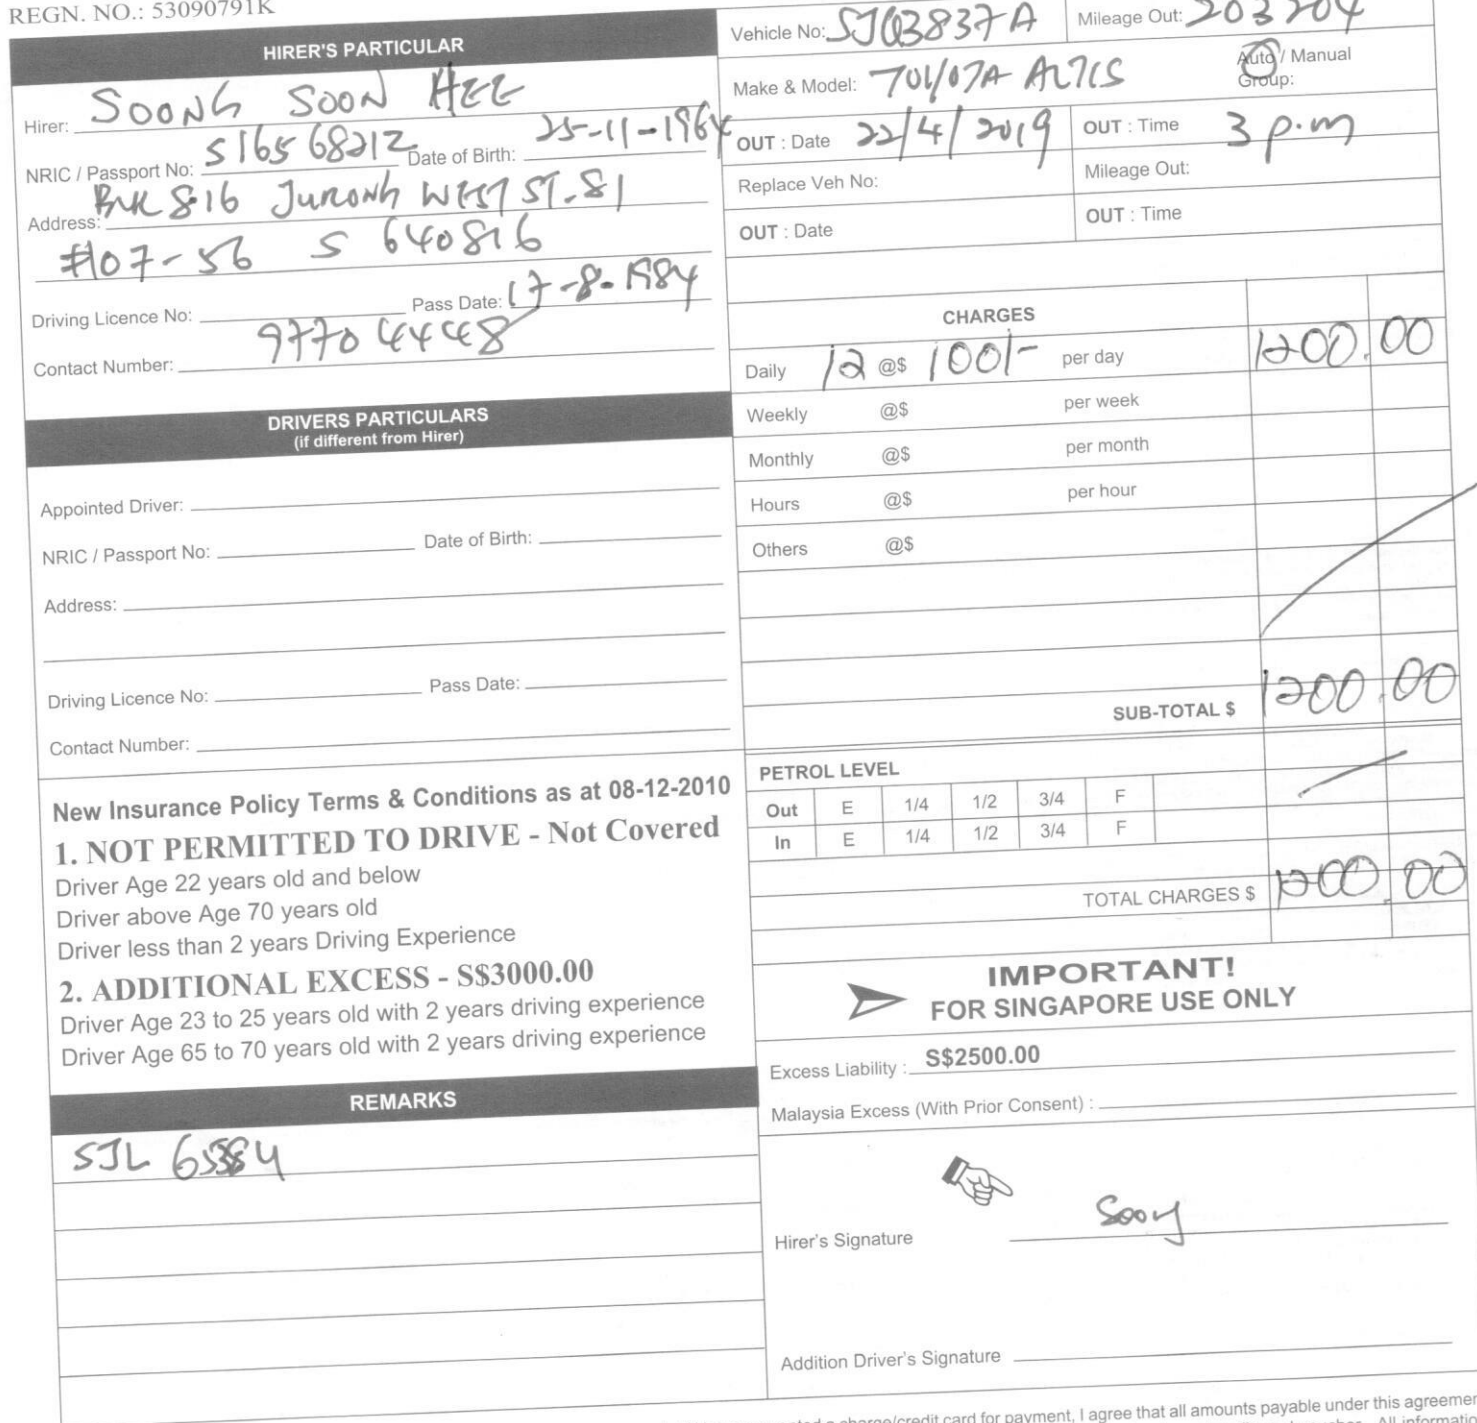 REGN. NO.: 53090791K
HIRER'S PARTICULAR
Hirer: SOONG SOON HEE
NRIC / Passport No: S1656821Z Date of Birth: 25-11-1964
Address: BLK 816 JURONG WEST ST-81
#107-56 S 640816
Driving Licence No: Pass Date: 17-8-1984
Contact Number: 97704448
DRIVERS PARTICULARS
(if different from Hirer)
Appointed Driver:
NRIC / Passport No: Date of Birth:
Address:
Driving Licence No: Pass Date:
Contact Number:
New Insurance Policy Terms & Conditions as at 08-12-2010
1. NOT PERMITTED TO DRIVE - Not Covered
Driver Age 22 years old and below
Driver above Age 70 years old
Driver less than 2 years Driving Experience
2. ADDITIONAL EXCESS - S$3000.00
Driver Age 23 to 25 years old with 2 years driving experience
Driver Age 65 to 70 years old with 2 years driving experience
REMARKS
SJL
Vehicle No: SJQ3837A Mileage Out: 203204
Make & Model: ALTIS Auto / Manual
Group:
OUT : Date 22/4/2019 OUT : Time 3 p.m
Replace Veh No: Mileage Out:
OUT : Date OUT : Time
CHARGES
Daily 12 @$ 100/- per day 1200.00
Weekly @$ per week
Monthly @$ per month
Hours @$ per hour
Others @$
SUB-TOTAL $ 1200.00
PETROL LEVEL
Out E 1/4 1/2 3/4 F
In E 1/4 1/2 3/4 F
TOTAL CHARGES $ 1200.00
IMPORTANT!
FOR SINGAPORE USE ONLY
Excess Liability : S$2500.00
Malaysia Excess (With Prior Consent) :
Hirer's Signature Soony
Addition Driver's Signature
charge/credit card for payment, I agree that all amounts payable under this agreemen